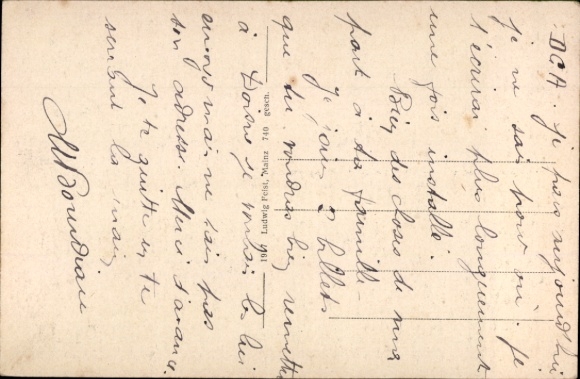 DCA. Je pars aujourd'hui
je ne sais pour où. Je
t'écrirai plus longuement
une fois installé.
Bien des choses de ma
part à ta famille —
Je joins 2 billets
que tu voudras bien remettre
à je voulais les lui
envoyer mais ne sais pas
son adresse. Merci d'avance.
Je te quitte en te
serrant la main
Ludwig Feist, Mainz 740 gesch.